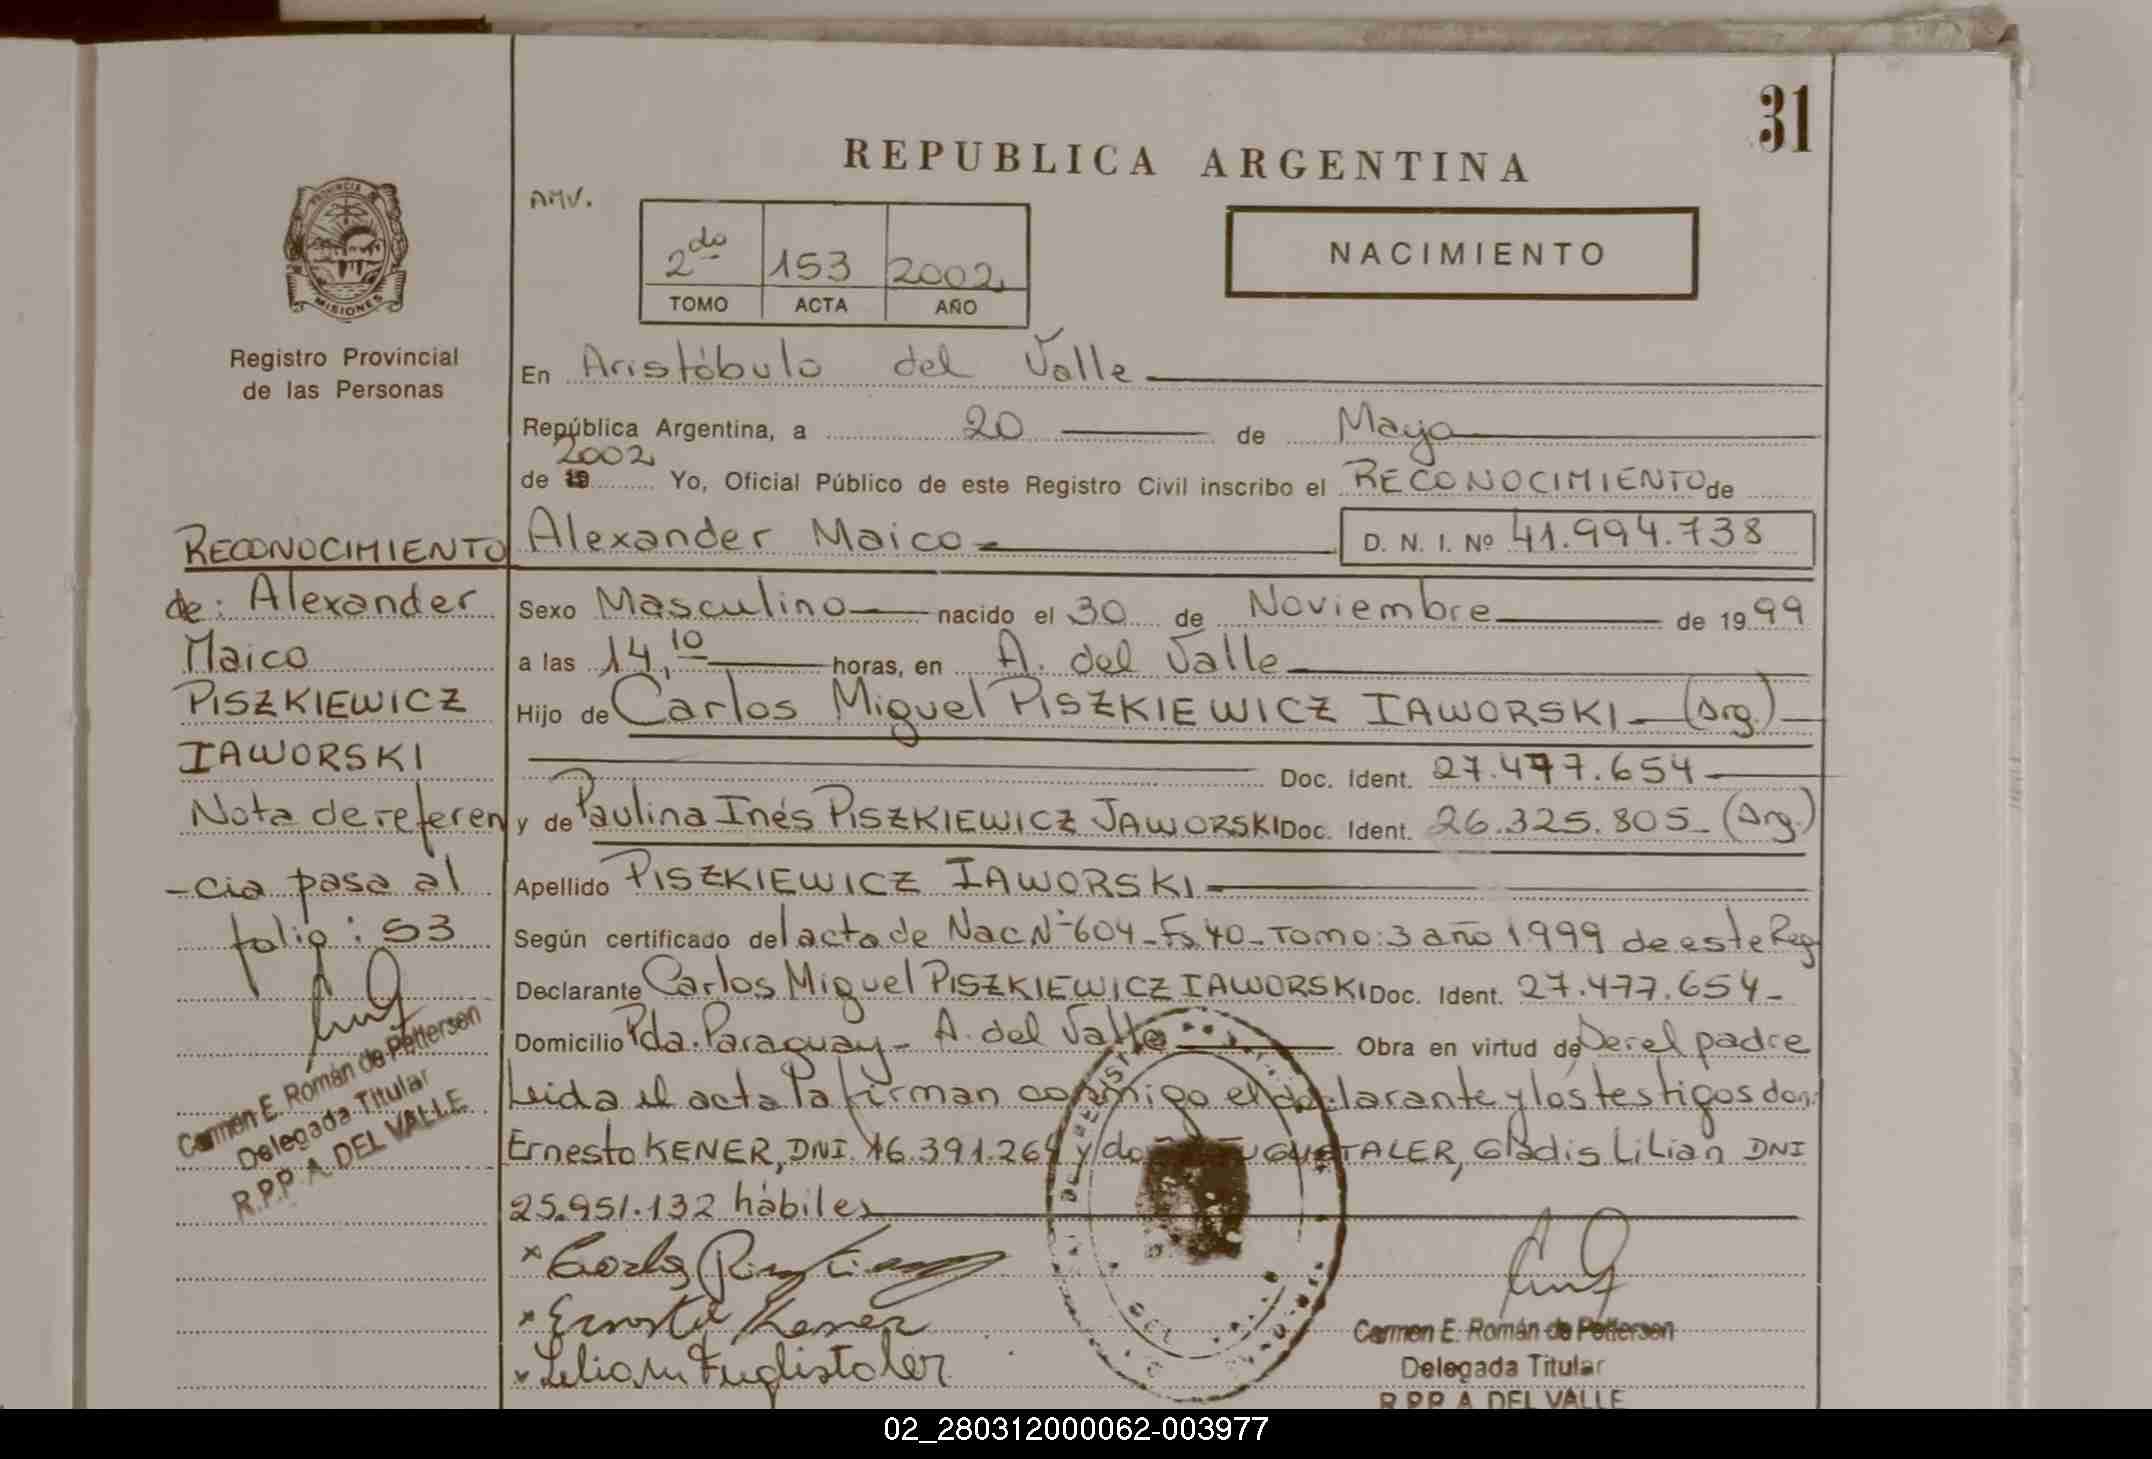 31
REPUBLICA ARGENTINA
AMV.
2do 153 2002
TOMO ACTA AÑO
NACIMIENTO
PROVINCIA
MISIONES
Registro Provincial
de las Personas
En Aristóbulo del Valle
República Argentina, a 20 de Mayo
2002
de 19 Yo, Oficial Público de este Registro Civil inscribo el RECONOCIMIENTO de
Alexander Maico D. N. I. Nº 41.994.738
Sexo Masculino nacido el 30 de Noviembre de 1999
a las 14,10 horas, en A. del Valle
Hijo de Carlos Miguel PISZKIEWICZ IAWORSKI (Arg.)
Doc. Ident. 27.477.654
y de Paulina Inés PISZKIEWICZ JAWORSKI Doc. Ident. 26.325.805 (Arg.)
Apellido PISZKIEWICZ IAWORSKI
Según certificado del acta de Nac Nº 604 - Fs 40 - Tomo: 3 año 1999 de este Reg
Declarante Carlos Miguel PISZKIEWICZ IAWORSKI Doc. Ident. 27.477.654
Domicilio Pda. Paraguay - A. del Valle Obra en virtud de Ser el padre
Leida el acta la firman conmigo el declarante y los testigos don:
Ernesto KENER, DNI. 16.391.264 y TALER, Gladis Lilian DNI
25.951.132 hábiles
Ernesto Kener
Lilian Fuglistaler
Carmen E. Román de Pettersen
Delegada Titular
R.P.P. A. DEL VALLE
RECONOCIMIENTO
de: Alexander
Maico
PISZKIEWICZ
IAWORSKI
Nota de referen
-cia pasa al
folio: 53
Carmen E. Román de Pettersen
Delegada Titular
R.P.P. A. DEL VALLE
02_280312000062-003977